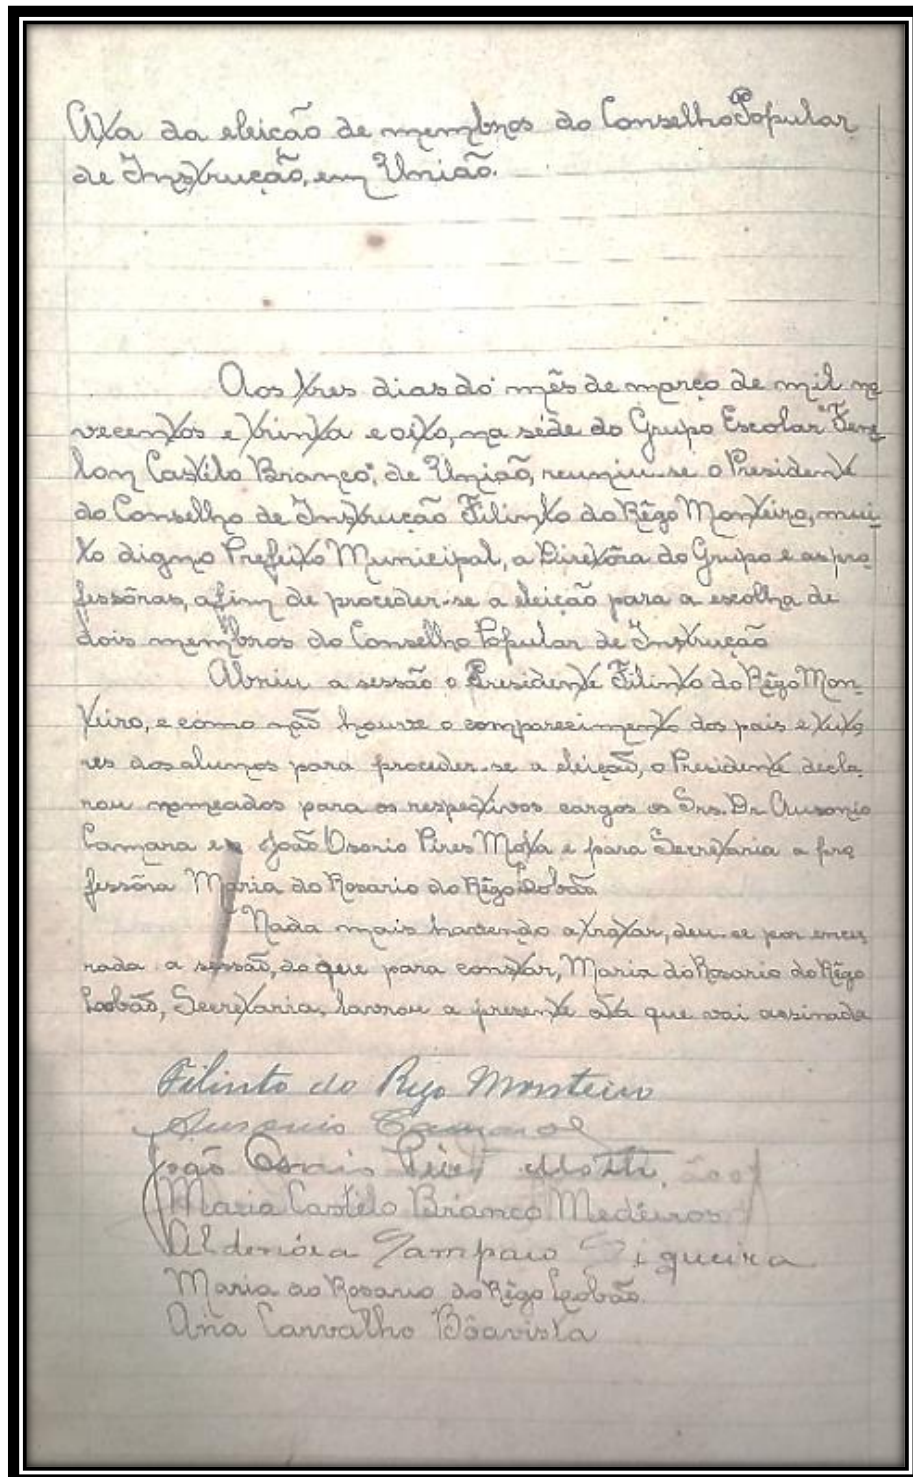 Ata da eleição de membros do Conselho Popular
de Instrução, em União.
Aos tres dias do mês de março de mil no
vecentos e trinta e oito, na séde do Grupo Escolar "Fene
lon Castélo Branco", de União, reuniu-se o Presidente
do Conselho de Instrução Filinto do Rêgo Monteiro, mui-
to digno Prefeito Municipal, a Diretôra do Grupo e as pro
fessôras, afim de proceder-se a eleição para a escolha de
dois membros do Conselho Popular de Instrução
Abriu a sessão o Presidente Filinto do Rêgo Mon-
teiro, e como não houve o comparecimento dos pais e tuto
res dos alunos para proceder-se a eleição, o Presidente decla
rou nomeados para os respectivos cargos os Srs. Dr. Ausonio
Camara e João Osorio Pires Mota e para Secretaria a pro
fessôra Maria do Rosario do Rêgo Lobão
Nada mais havendo a tratar, deu-se por encer
rada a sessão, do que para constar, Maria do Rosario do Rêgo
Lobão, Secretaria, lavrou a presente ata que vai assinada
Filinto do Rego Monteiro
Ausonio Camara
João Osorio Pires Motta
Maria Castélo Branco Medeiros
Aldenóra Sampaio Siqueira
Maria do Rosario do Rêgo Lobão
Ana Carvalho Bôavista